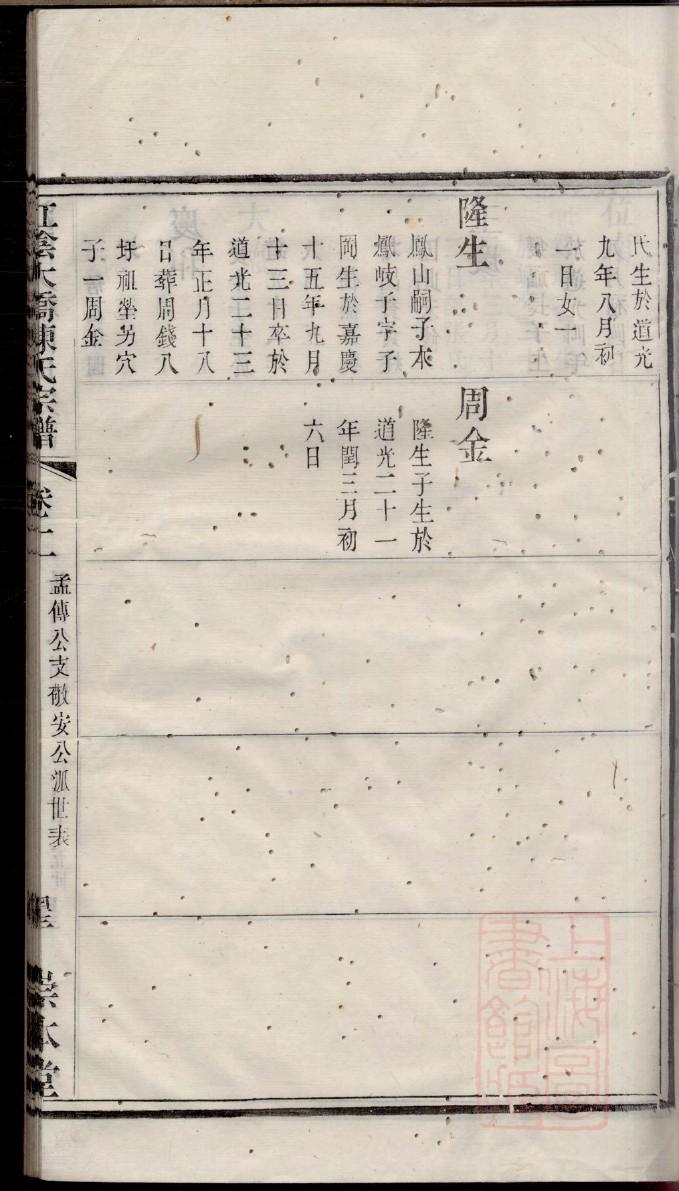 氏生於道光
九年八月初
一日女一
隆生
鳳山嗣子本
鳳岐子字子
岡生於嘉慶
十五年九月
十三日卒於
道光二十三
年正月十八
日葬周錢八
圩祖塋另穴
子一周金
周金
隆生子生於
道光二十一
年閏三月初
六日
江陰大橋陳氏宗譜
卷十二
孟傳公支敬安公派世表
崇本堂
上海圖書館